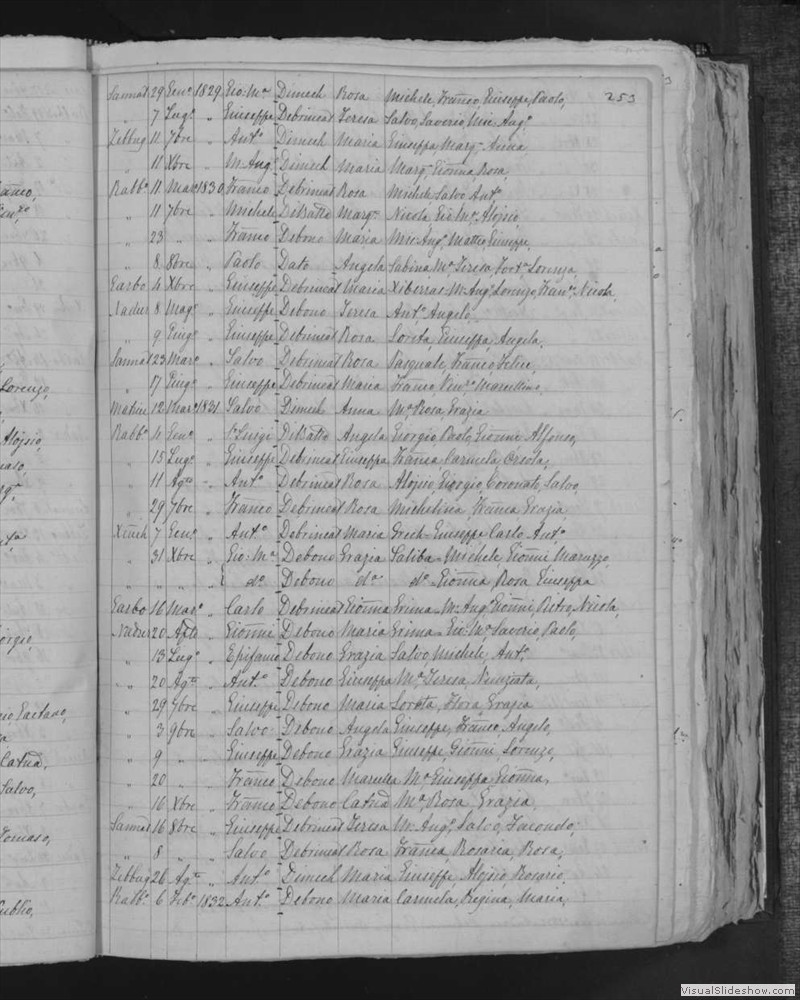 253
Sannat 29 Gen.o 1829 Gio: M.a Dimech Rosa Michele, Franco, Giuseppe, Paolo,
" 7 Lug.o " Giuseppe Debrincat Teresa Salvo, Saverio, Mic: Ang.o
Zebbug 11 7bre " Ant.o Dimech Maria Giuseppa Marg.a Anna
" 11 Xbre " M. Ang.o Dimech Maria Marg.a Gionna Rosa
Rabb.o 11 Mar. 1830 Franco Debrincat Rosa Michele, Salvo, Ant.o
" 11 7bre " Michele DiBatta Marg.a Nicola Gio: M.a Alojsio
" 23 " " Franco Debono Maria Mic: Ang.o Matteo Giuseppe,
" 8 8bre " Paolo Dato Angela Sabina M.a Teresa Fort.a Lorenza
Garbo 4 Xbre " Giuseppe Debrincat Maria Xiberras M. Ang.o Lorenzo, Fran.o Nicola,
Nadur 8 Mag.o " Giuseppe Debono Teresa Ant.o Angelo
" 9 Giug.o " Giuseppe Debrincat Rosa Loreta Giuseppa, Angela,
Sannat 23 Mar.o " Salvo Debrincat Rosa Pasquale, Franco, Felice,
" 17 Giug.o " Giuseppe Debrincat Maria Franco, Vin.o Marcellino,
12 Mar.o 1831 Salvo Dimech Anna M.a Rosa, Grazia
Rabb.o 4 Gen.o " Luigi DiBatta Angela Giorgio Paolo, Gionni Alfonso,
" 15 Lug.o " Giuseppe Debrincat Giuseppa Franca Carmela, Orsola,
" 11 Ag.to " Ant.o Debrincat Rosa Alojsio, Giorgio, Coronato, Salvo,
" 29 7bre " Franco Debrincat Rosa Michelina, Franca Grazia
Xeuch 7 Gen.o " Ant.o Debrincat Maria Grech - Giuseppe Carlo Ant.o
" 31 Xbre " Gio: M.a Debono Grazia Saliba - Michele, Gionni Maruzzo,
" " " " d.o Debono d.o d.o Gionna, Rosa, Giuseppa
Garbo 16 Mag.o " Carlo Debrincat Gionna Grima - M. Ang.o Gionni, Pietro, Nicola,
Nadur 20 " Gionni Debono Maria Grima - Gio: M.a Saverio, Paolo,
" 13 Lug.o " Epifanio Debono Grazia Salvo, Michele, Ant.o
" 20 Ag.to " Ant.o Debono Giuseppa M.a Teresa, Nunziata,
" 29 7bre " Giuseppe Debono Maria Loreta, Flora, Grazia
" 3 9bre " Salvo Debono Angela Giuseppe, Franco, Angelo,
" 9 " " Giuseppe Debono Grazia Giuseppe, Gionni, Lorenzo,
" 20 " " Franco Debono M.a Giuseppa Gionna,
" 16 Xbre " Franco Debono Catna M.a Rosa, Grazia,
Sannat 16 8bre " Giuseppe Debrincat Teresa M. Ang.o Salvo, Facondo,
" 8 " " Salvo Debrincat Rosa Franca, Rosaria, Rosa,
Zebbug 26 Ag.to " Ant.o Dimech Maria Giuseppe Alojsio Rosario,
Rabb.o 6 Feb.o 1832 Ant.o Debono Maria Carmela, Regina, Maria,
Lorenzo,
Alojsio,
Giorgio,
Gaetano,
Catna,
Salvo,
Tomaso,
Publio,
VisualSlideshow.com